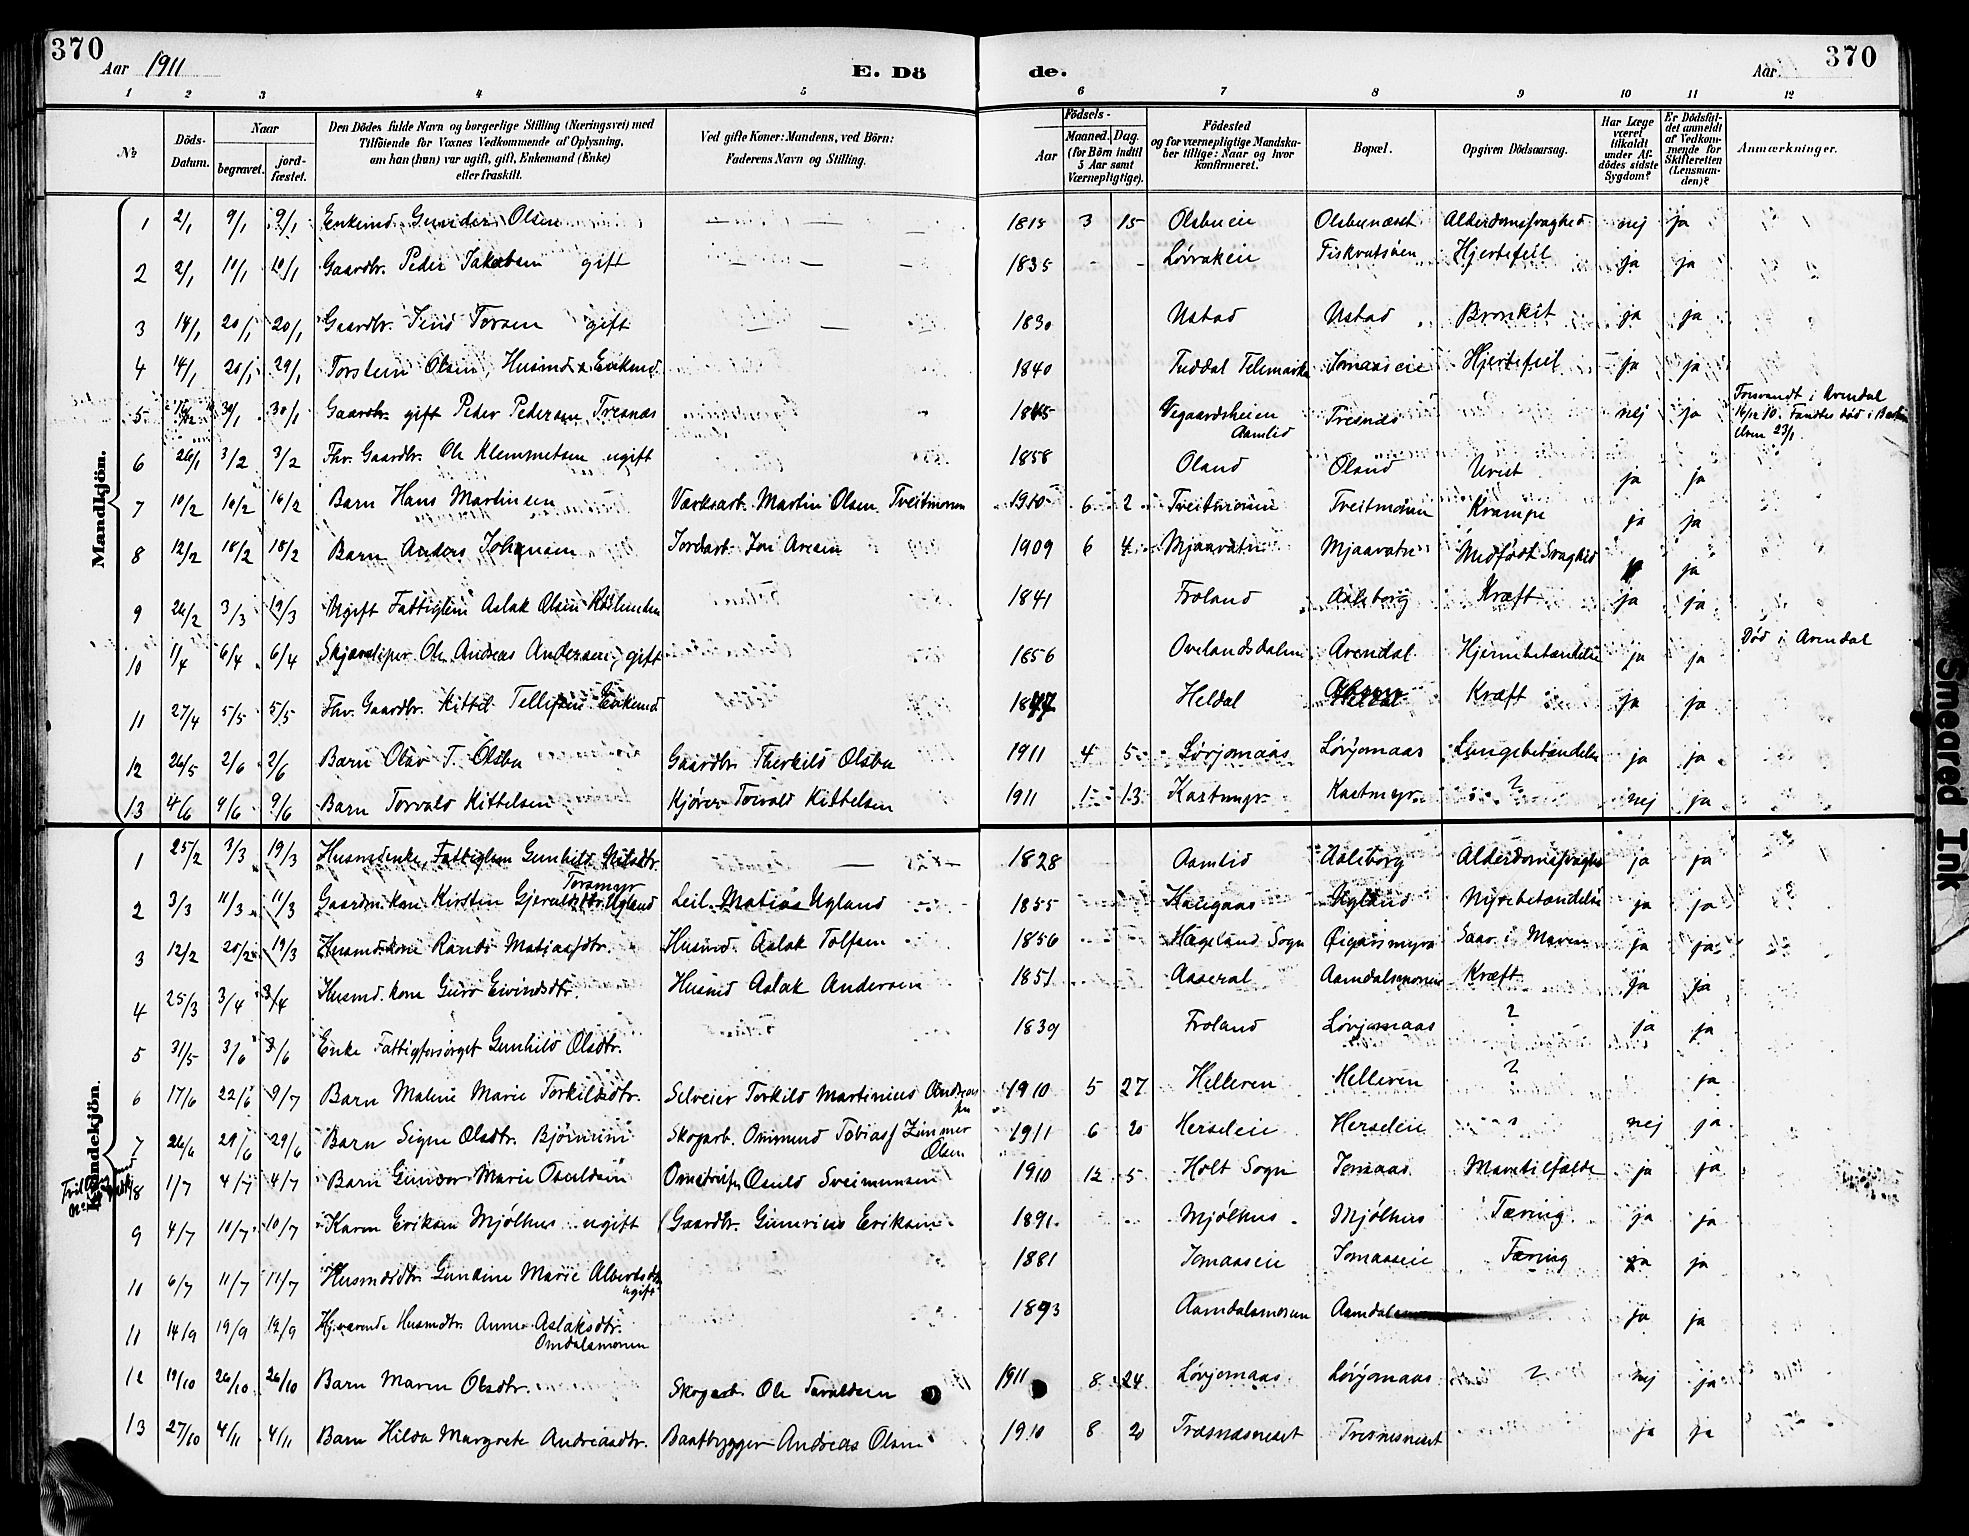 370
Aar 1911
E. Dö
de.
Aar
370
1 2 3 4 5 6 7 8 9 10 11 12
№
Döds-Datum.
Naar
begravet.
jord-fæstet.
Den Dödes fulde Navn og borgerlige Stilling (Næringsvei) med
Tilföiende for Voxnes Vedkommende af Oplysning,
om han (hun) var ugift, gift, Enkemand (Enke)
eller fraskilt.
Ved gifte Koner: Mandens, ved Börn:
Faderens Navn og Stilling.
Födsels-
Aar
Maaned. Dag.
(for Börn indtil
5 Aar samt
Værnepligtige).
Födested
og for værnepligtige Mandska-
ber tillige: Naar og hvor
konfirmeret.
Bopæl.
Opgiven Dödsaarsag.
Har Læge
været
tilkaldt
under Af-
dödes sidste
Sygdom?
Er Dödsfal-
det anmeldt
af Vedkom-
mende for
Skifteretten
(Lensman-
den)?
Anmærkninger.
Mandkjön.
1 2/1 9/1 9/1 Enkemd. Gunder Olsen 1815 3 15 Olsbueie Olsbunæset Alderdomsvaghed nej ja
2 2/1 10/1 10/1 Gaardbr. Peder Jakobsen gift 1835 - - Lövrakeie Fiskvatsöen Hjertefeil ja ja
3 14/1 20/1 20/1 Gaardbr. Jens Torsen gift 1830 Ustad Ustad Bronkit ja ja
4 14/1 20/1 29/1 Torstein Olsen, Husmd. Enkemd. 1840 Tuddal Telemarken Jomaaseie Hjertefeil ja ja
5 16/12 30/1 30/1 Gaardbr. gift Peder Pedersen Tresnæs 1865 Vegaardsheien Aamlid Tresnæs nej ja Forsvandt i Arendal
16/12 10. Fandtes død i
elven 23/1.
6 26/1 3/2 3/2 Fhv. Gaardbr. Ole Klemmetsen ugift 1858 Oland Oland Uvist ja ja
7 10/2 16/2 16/2 Barn Hans Martinsen Værksarb. Martin Olsen Tveitmoen 1910 6 2 Tveitmoen Tveitmoen Krampe ja ja
8 12/2 18/2 18/2 Barn Anders Johnsen Jordarb. Jon Aresen 1909 6 4 Mjaavatn Mjaavatn Medfödt Svaghed ja
9 26/2 3/3 19/3 Ugift Fattiglem Aslak Olsen 1841 Froland Aalsborg Kræft ja ja
10 1/4 6/4 6/4 Skjærsliper Ole Andreas Andersen, gift 1856 Ovelandsdalen Arendal Hjernebetændelse ja ja Död i Arendal
11 27/4 5/5 5/5 Fhv. Gaardbr. Kittil Tellefsen Enkemd Heldal Kræft ja ja
12 26/5 2/6 2/6 Barn Olav T. Olsbu Gaardbr. Therkild Olsbu 1911 4 5 Lövjomaas Lövjomaas Lungebetændelse ja ja
13 4/6 9/6 9/6 Barn Torvald Kittelsen Kjörer Torvald Kittelsen 1911 1 13 Kastmyr Kastmyr ? nej ja
Kvindekjön.
1 25/2 3/3 19/3 Husmdenke, Fattiglem Gunhild Nilsdtr. 1828 Aamlid Aalsborg Alderdomsvaghed ja ja
2 3/3 11/3 11/3 Gaardm.kone Kirsten Gjeruldsdtr. Torsmyr Ugland Leil. Matias Ugland 1855 Haugaas Ugland Nyrebetændelse ja ja
3 12/2 20/2 19/3 Husmd.kone Randi Matiasdtr. Husmd. Aslak Tolfsen 1856 Hægeland Sogn Saar i Maven ja ja
4 25/3 3/4 3/4 Husmd.kone Guro Eivindsdtr. Husmd Aslak Andersen 1851 Aaseral Aamdalsmoen Kræft ja ja
5 31/5 3/6 3/6 Enke Fattigforsörget Gunhild Olsdtr. 1839 Froland Lövjomaas ? ja ja
6 17/6 22/6 9/7 Barn Malene Marie Torkildsdtr. Selveier Torkild Martinius Andreassen 1910 5 27 Helleren Helleren ? ja
7 26/6 29/6 29/6 Barn Signe Olsdtr. Skogarb. Ommund Tobias Zimmer Olsen 1911 6 20 Herseleie Herseleie ? nej ja
8 1/7 4/7 4/7 Barn Gunvor Marie Osuldsen Osuld Sveinunsen 1910 12 5 Holt Sogn Jomaas Mavetilfælde ja ja
9 4/7 10/7 10/7 Karen Eriksen Mjölhus ugift (Gaardbr. Gunvius Eriksen 1891 Mjölhus Mjölhus Tæring ja ja
10 6/7 11/7 11/7 Husmdsdtr. Gunene Marie Albertsdtr. ugift 1881 Jomaaseie Jomaaseie Tæring ja ja
11 14/9 19/9 19/9 Hj.værende Husmdtr. Anne Aslaksdtr. Omdalsmonen 1893 Aamdalsmonen Aamdalsmonen ja ja
12 19/10 26/10 26/10 Barn Maren Olsdtr. Skogarb. Ole Tarald­sen 1911 8 24 Lövjomaas Lövjomaas ? nej ja
13 27/10 4/11 4/11 Barn Hilda Margrete Andreasdtr. Baatbygger Andreas Olsen 1910 8 20 Træsnæsneset Tresnesneset ja ja
Smeared Ink